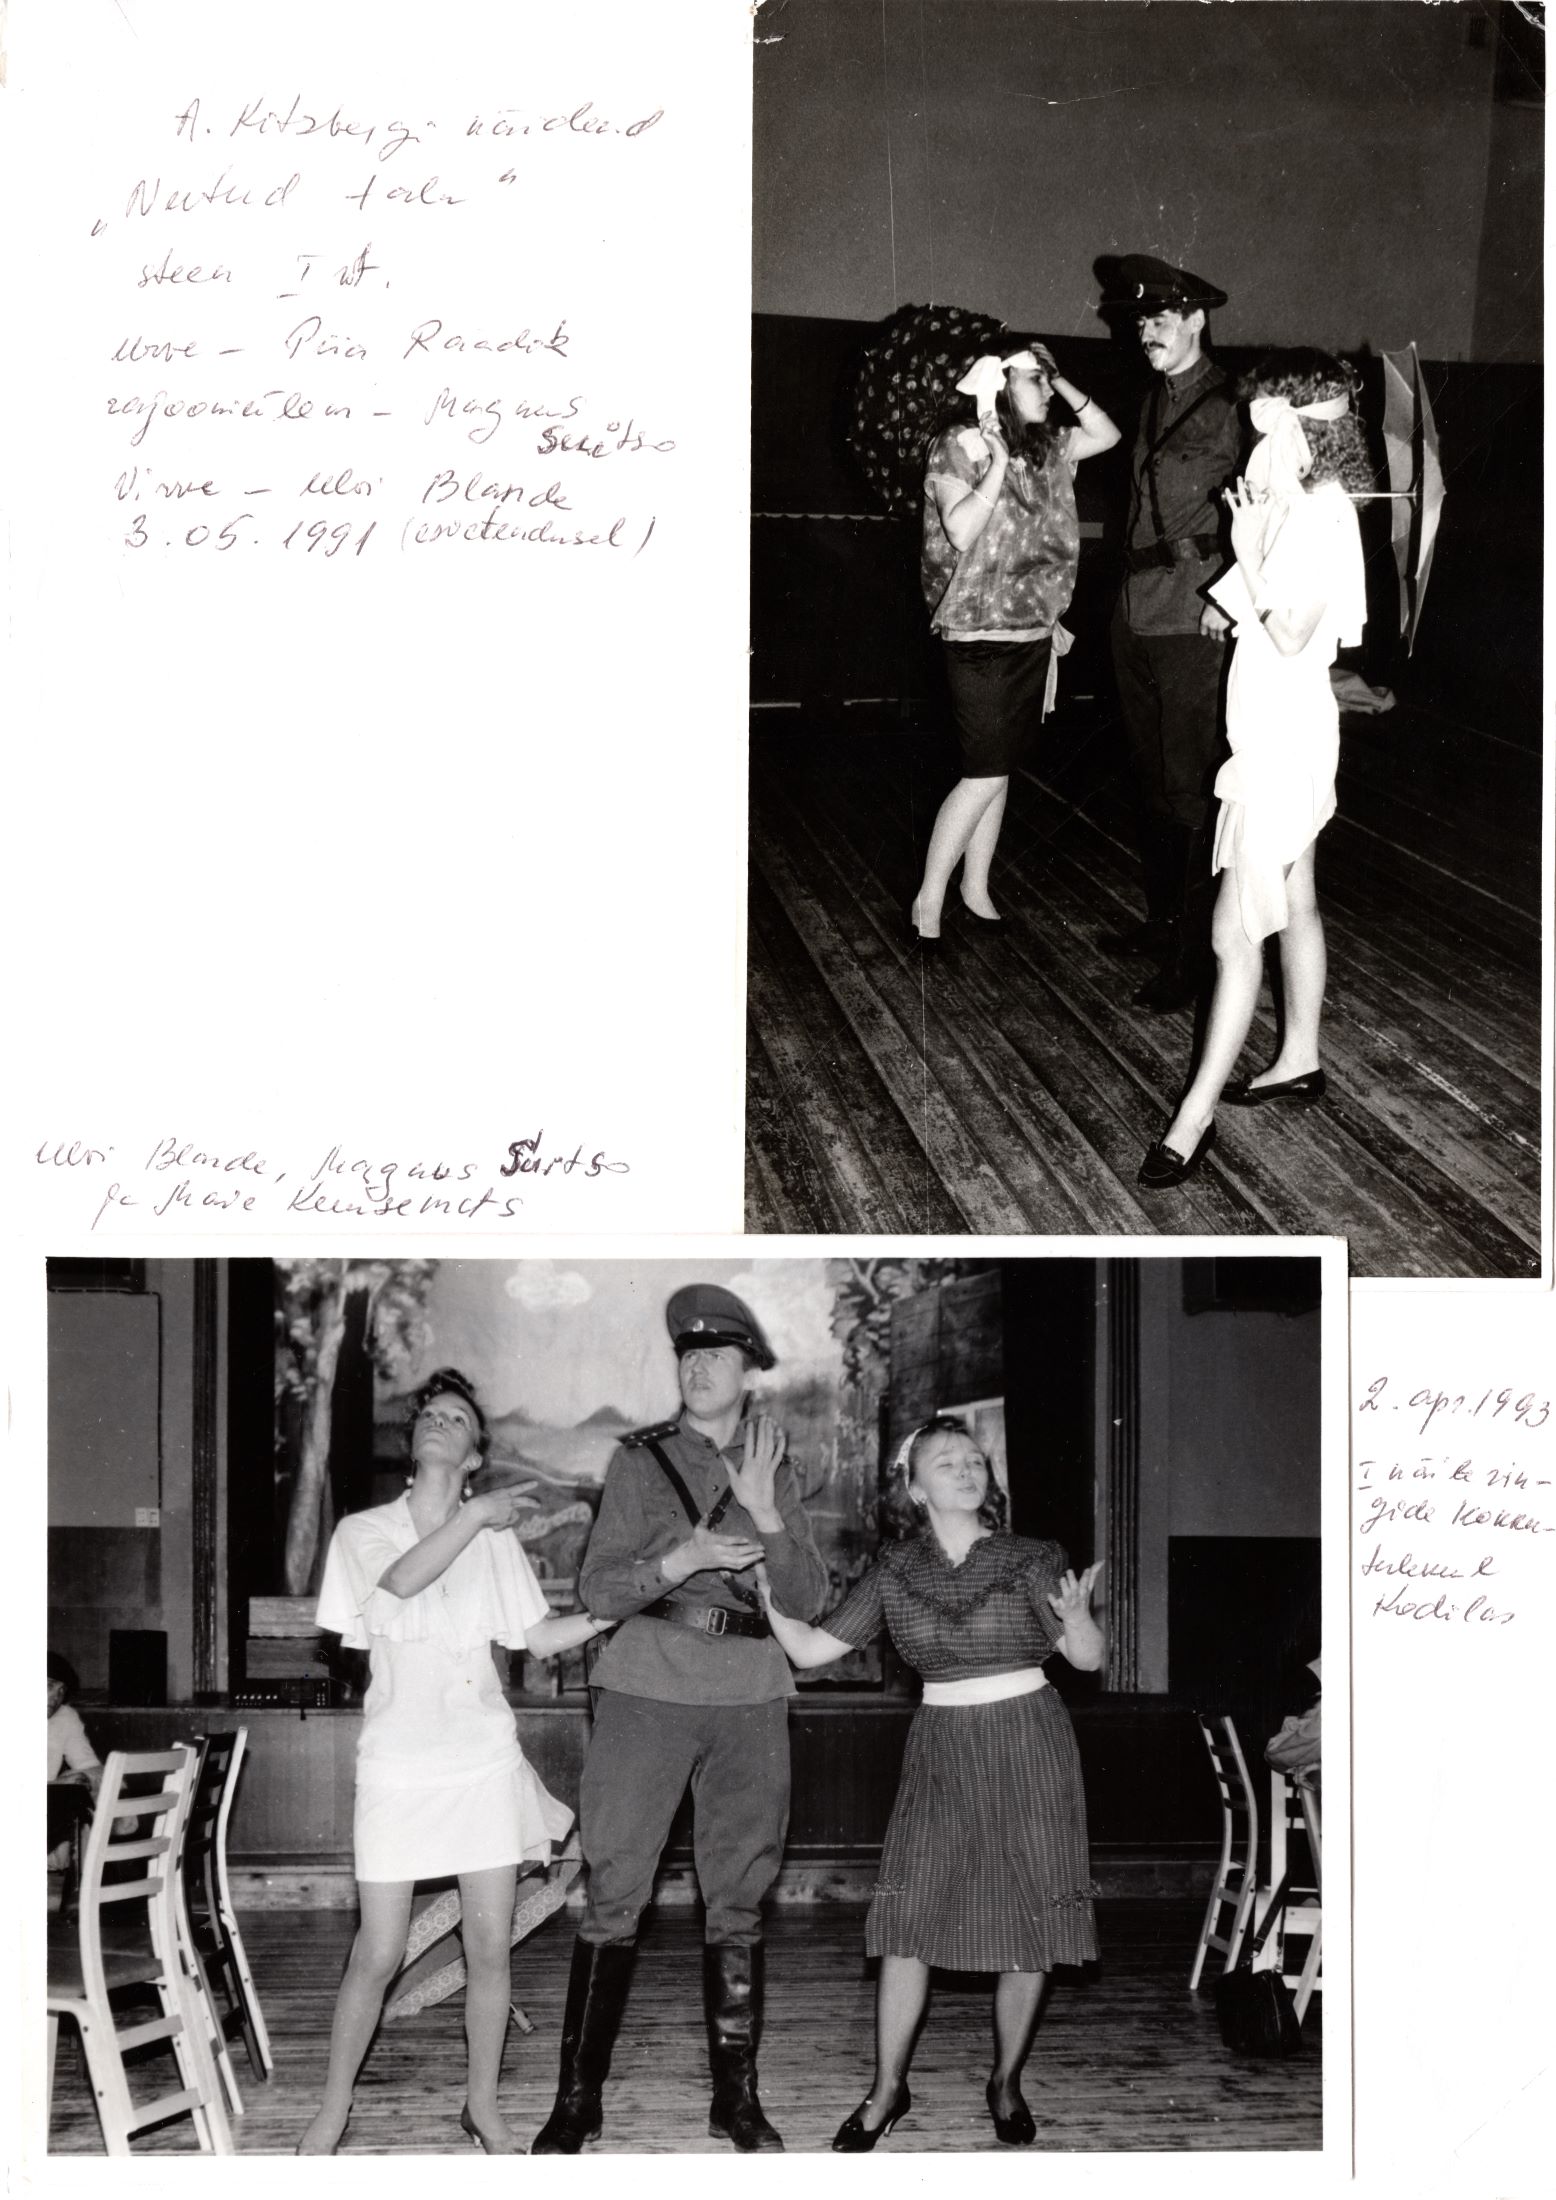 A. Kitzbergi näidend
„Neetud talu"
steen I vt.
Urve - Piia Raadik
rajooniülem - Magnus
Süütso
Virve - Ulvi Blande
3.05.1991 (esietendusel)
Ulvi Blande, Magnus Surtso
ja Maie Kuusemets
2. apr. 1993
I näiterin-
gide kokku-
tulekul
Kodilas